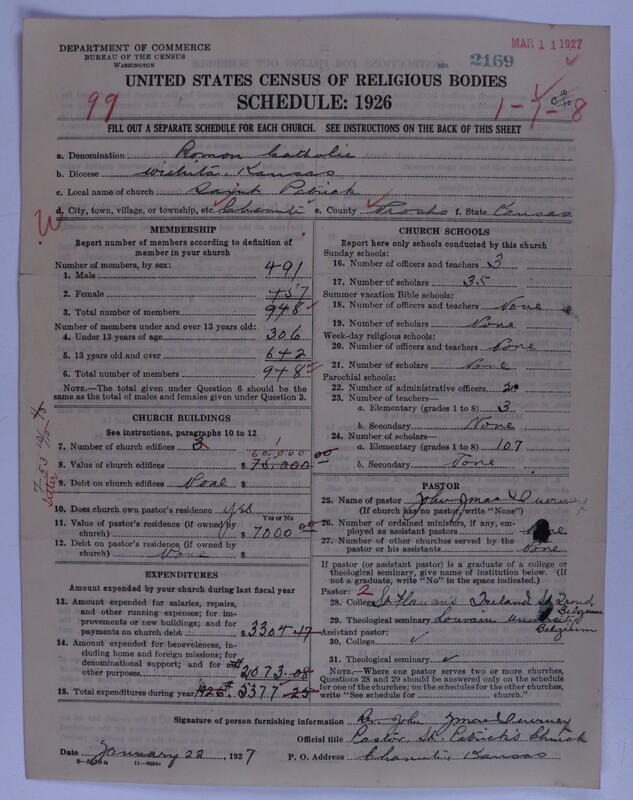 DEPARTMENT OF COMMERCE
BUREAU OF THE CENSUS
WASHINGTON
2169
MAR 11 1927
UNITED STATES CENSUS OF RELIGIOUS BODIES
SCHEDULE: 1926
99
1-7-8
FILL OUT A SEPARATE SCHEDULE FOR EACH CHURCH. SEE INSTRUCTIONS ON THE BACK OF THIS SHEET
a. Denomination Roman Catholic
b. Diocese Wichita, Kansas
c. Local name of church Saint Patrick
d. City, town, village, or township, etc. Chanute e. County Neosho f. State Kansas
MEMBERSHIP
Report number of members according to definition of
member in your church
Number of members, by sex:
1. Male 491
2. Female 457
3. Total number of members 948
Number of members under and over 13 years old:
4. Under 13 years of age 306
5. 13 years old and over 642
6. Total number of members 948
NOTE.—The total given under Question 6 should be the
same as the total of males and females given under Question 3.
CHURCH BUILDINGS
See instructions, paragraphs 10 to 12
7. Number of church edifices 3 1
60,000
8. Value of church edifices $ 75,000 00
9. Debt on church edifices None $
10. Does church own pastor's residence? yes
Yes or No
11. Value of pastor's residence (if owned by
church) $ 7000 00
12. Debt on pastor's residence (if owned by
church) None $
EXPENDITURES
Amount expended by your church during last fiscal year
13. Amount expended for salaries, repairs,
and other running expenses; for im-
provements or new buildings; and for
payments on church debt $ 3304-17
14. Amount expended for benevolences, in-
cluding home and foreign missions; for
denominational support; and for all
other purposes $2073-08
15. Total expenditures during year 1926 $ 5377-25
CHURCH SCHOOLS
Report here only schools conducted by this church
Sunday schools:
16. Number of officers and teachers 3
17. Number of scholars 35
Summer vacation Bible schools:
18. Number of officers and teachers None
19. Number of scholars None
Week-day religious schools:
20. Number of officers and teachers None
21. Number of scholars None
Parochial schools:
22. Number of administrative officers 2
23. Number of teachers—
a. Elementary (grades 1 to 8) 3
b. Secondary None
24. Number of scholars—
a. Elementary (grades 1 to 8) 107
b. Secondary None
PASTOR
25. Name of pastor John
(If church has no pastor, write "None")
26. Number of ordained ministers, if any, em-
ployed as assistant pastors None
27. Number of other churches served by the
pastor or his assistants None
If pastor (or assistant pastor) is a graduate of a college or
theological seminary, give name of institution below. (If
not a graduate, write "No" in the space indicated.)
Pastor: 2
28. College Ireland St Trond, Belgium
29. Theological seminary Louvain University Belgium
Assistant pastor:
30. College
31. Theological seminary
NOTE.—Where one pastor serves two or more churches,
Questions 28 and 29 should be answered only on the schedule
for one of the churches; on the schedules for the other churches,
write "See schedule for church."
Signature of person furnishing information Rev. John
Official title Pastor, St. Patrick's Church
Date January 22, 1927 P. O. Address Chanute, Kansas